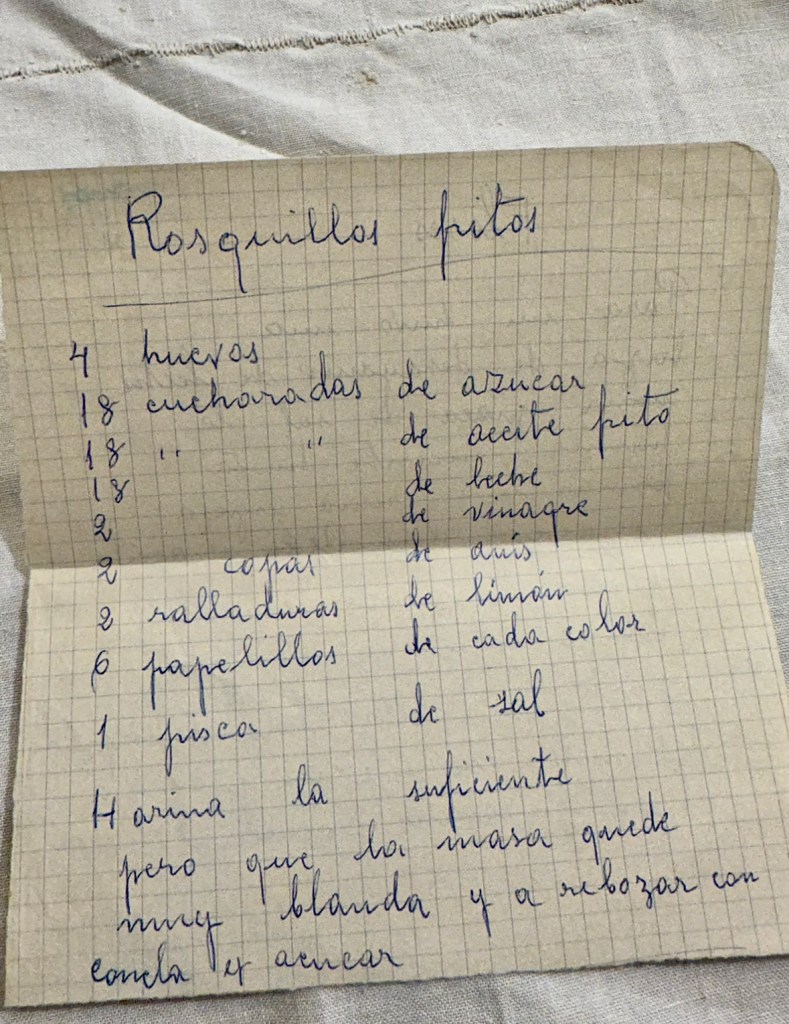 Rosquillos fritos
4 huevos
18 cucharadas de azucar
18 " " de aceite frito
18 de leche
2 de vinagre
2 copas de anís
2 ralladuras de limón
6 papelillos de cada color
1 pisca de sal
Harina la suficiente
pero que la masa quede
muy blanda y a rebozar con
canela y azucar